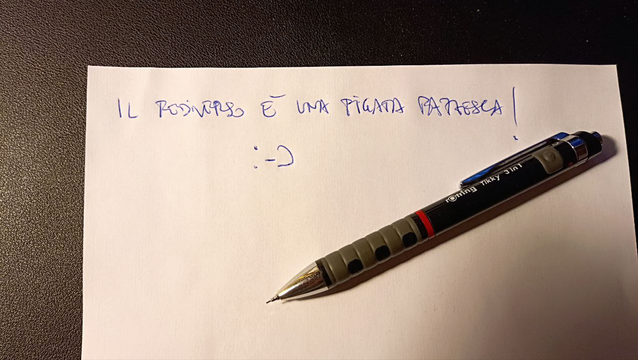 IL FEDIVERSO È UNA FIGATA PAZZESCA!
:-D
rOtring Tikky 3 in 1